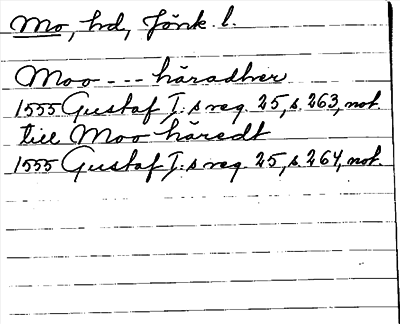 Mo, hd, Jönk. l.
Moo --- häradher
1555 Gustaf I:s reg. 25, s. 263, not.
till Moo häredt
1555 Gustaf I:s reg. 25, s. 264, not.